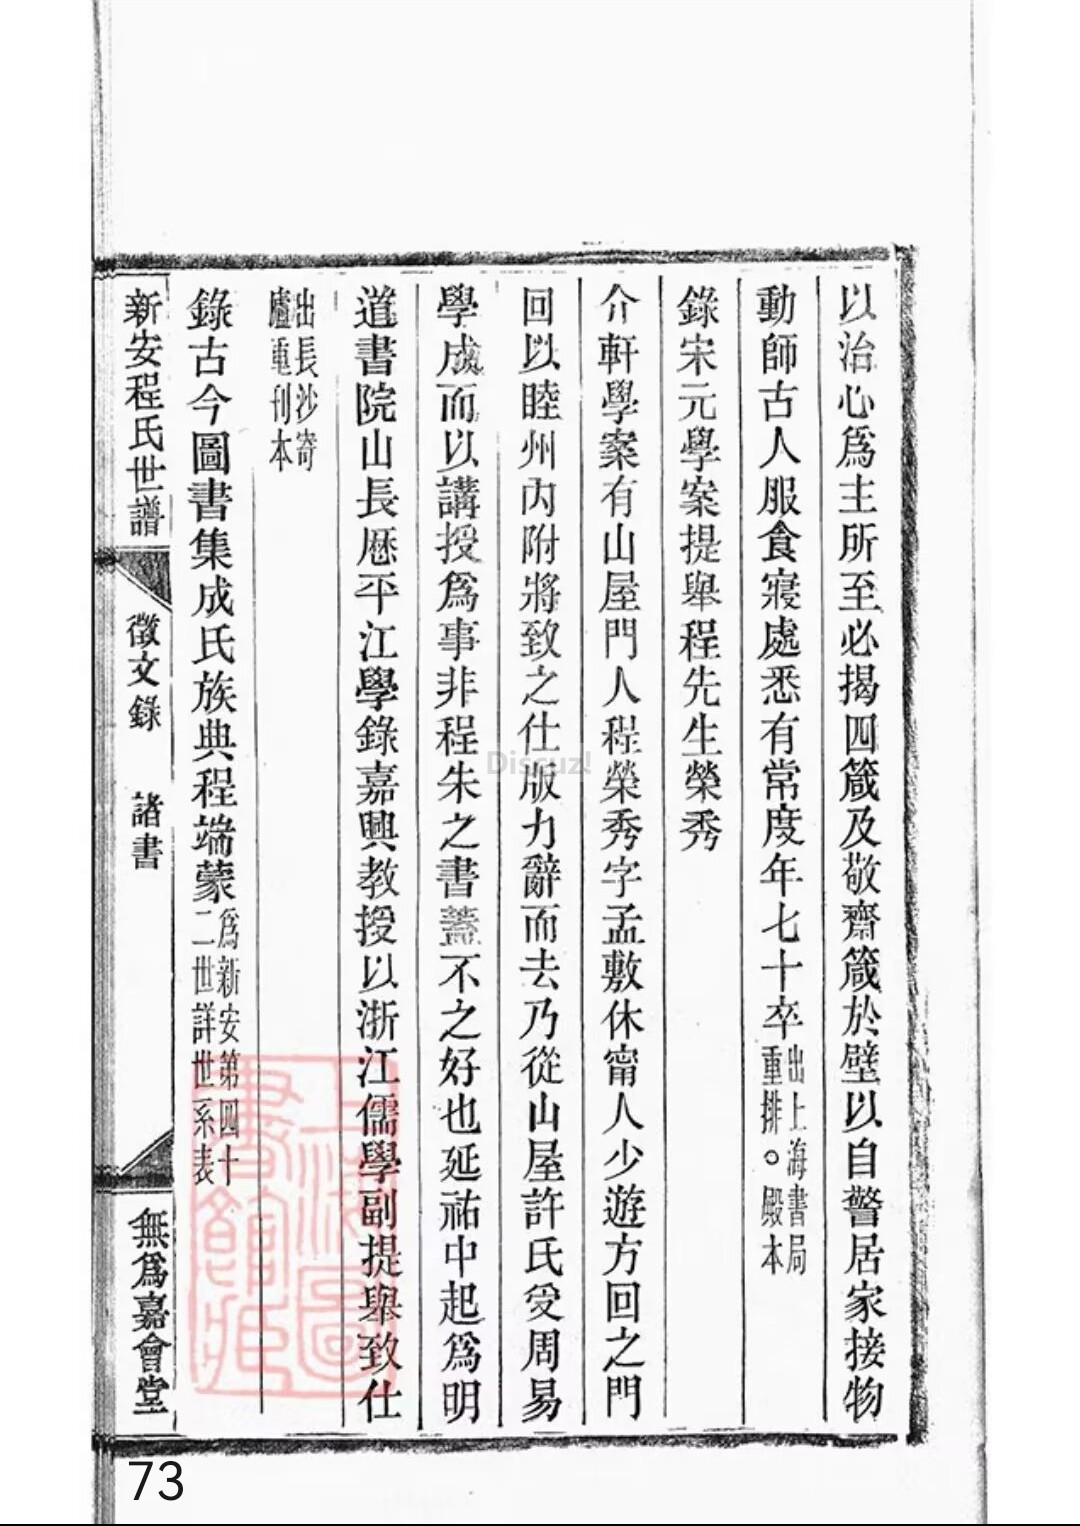 以治心爲主所至必揭四箴及敬齋箴於壁以自警居家接物
動師古人服食寢處悉有常度年七十卒出上海書局重排。殿本
錄宋元學案提舉程先生榮秀
介軒學案有山屋門人程榮秀字孟敷休甯人少遊方回之門
回以睦州內附將致之仕版力辭而去乃從山屋許氏受周易
學成而以講授爲事非程朱之書蓋不之好也延祐中起爲明
道書院山長歷平江學錄嘉興教授以浙江儒學副提舉致仕
出長沙寄廬重刊本
錄古今圖書集成氏族典程端蒙爲新安第四十二世詳世系表
新安程氏世譜 徵文錄 諸書 無爲嘉會堂
上海圖書館藏
Discuz!
73